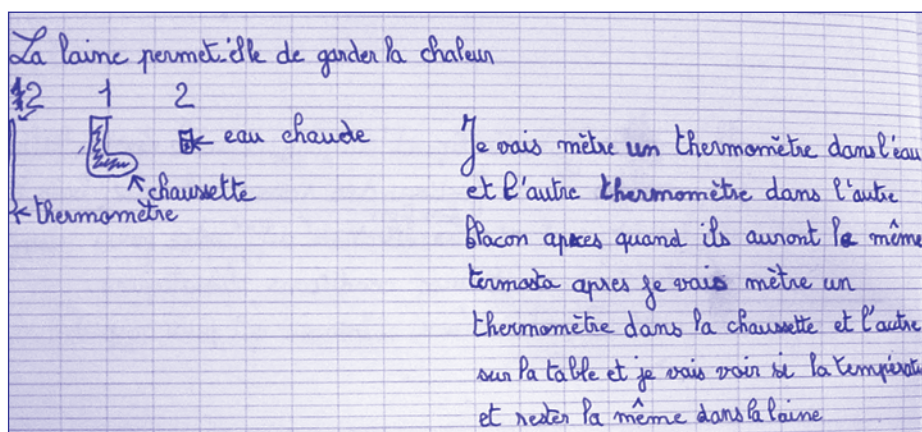 La laine permet-elle de garder la chaleur
2 1 2
eau chaude
chaussette
thermomètre
Je vais mètre un thermomètre dans l'eau
et l'autre thermomètre dans l'autre
flacon apres quand ils auront le même
termosta apres je vais mètre un
thermomètre dans la chaussette et l'autre
sur la table et je vais voir si la températu
et rester la même dans la laine